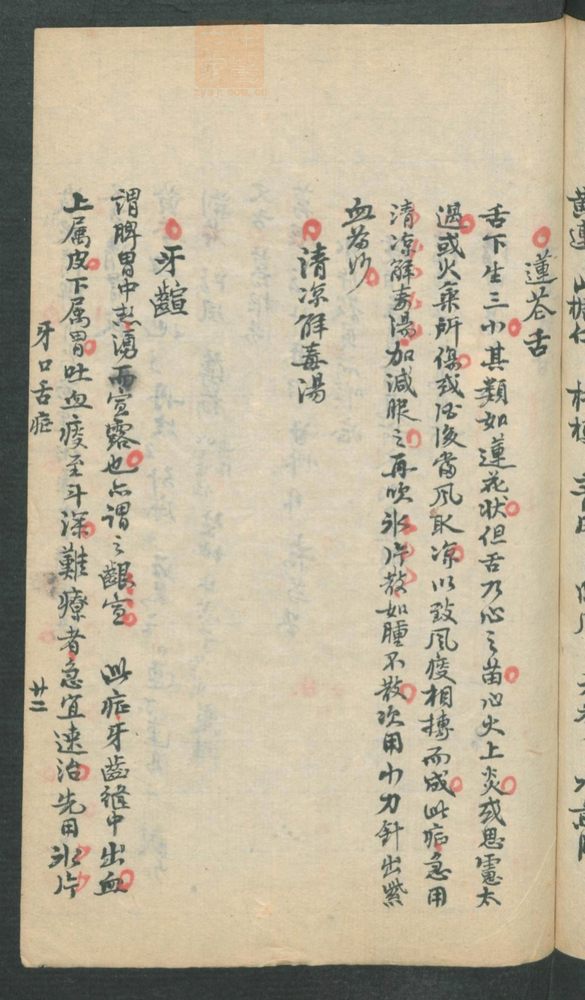 蓮苍舌
舌下生三小其類如蓮花狀但舌乃心之苗心火上炎或思慮太
過或火乘所傷或酒後當風取凉以致风痰相搏而成此症急用
清凉解毒湯加减服之再吹氷片散如腫不散次用小刀針出紫
血為妙
清凉解毒湯
牙齦
謂脾胃中热湧而宣露也亦謂之齦宣 此症牙齒縫中出血
上属皮下属胃吐血痰至斗深難療者急宜速治先用氷片
牙口舌症
廿二